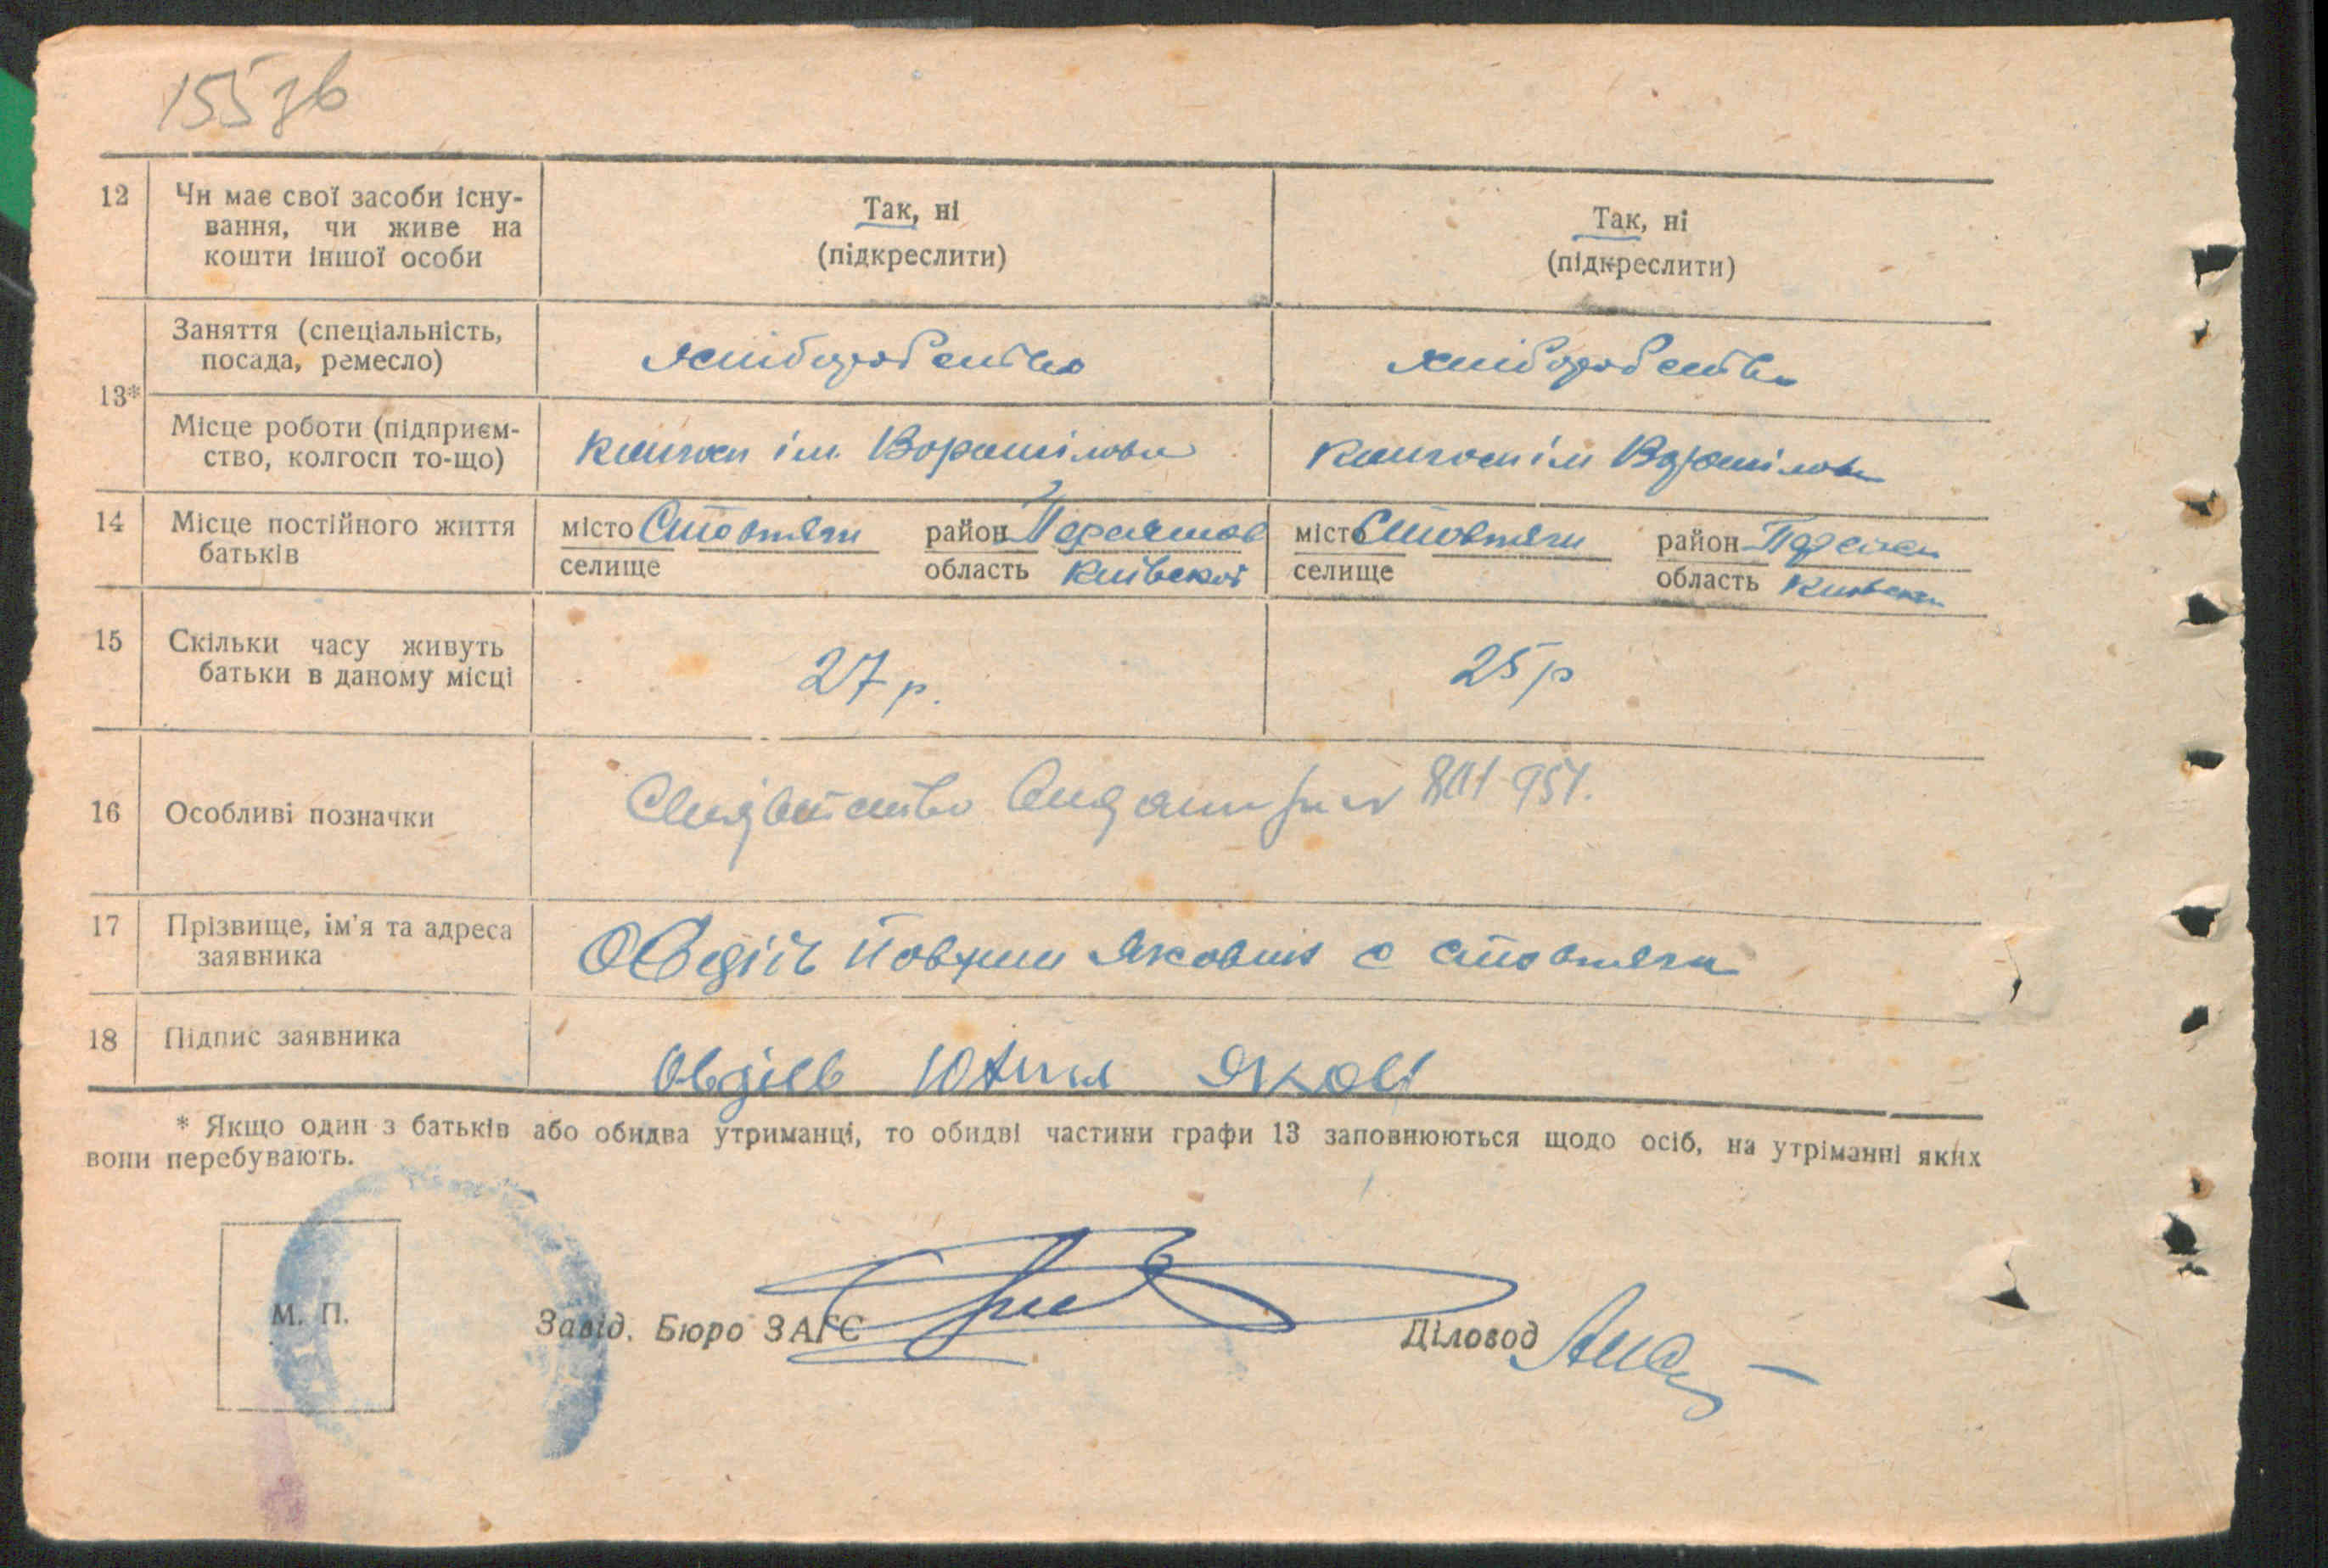 155 зв
12 Чи має свої засоби існу-
вання, чи живе на
кошти іншої особи
Так, ні
(підкреслити)
Так, ні
(підкреслити)
13*
Заняття (спеціальність,
посада, ремесло)
хліборобство
хліборобство
Місце роботи (підприєм-
ство, колгосп то-що)
колгосп ім Ворошілова
колгосп ім Ворошілова
14 Місце постійного життя
батьків
місто Стовпяги район
селище область Київської
місто Стовпяги район
селище область
15 Скільки часу живуть
батьки в даному місці
27 р.
25 р
16 Особливі позначки
17 Прізвище, ім'я та адреса
заявника
Овдієь Яковна с Стовпяги
18 Підпис заявника
* Якщо один з батьків або обидва утриманці, то обидві частини графи 13 заповнюються щодо осіб, на утріманні яких
вони перебувають.
М. П.
Завід. Бюро ЗАГС
Діловод